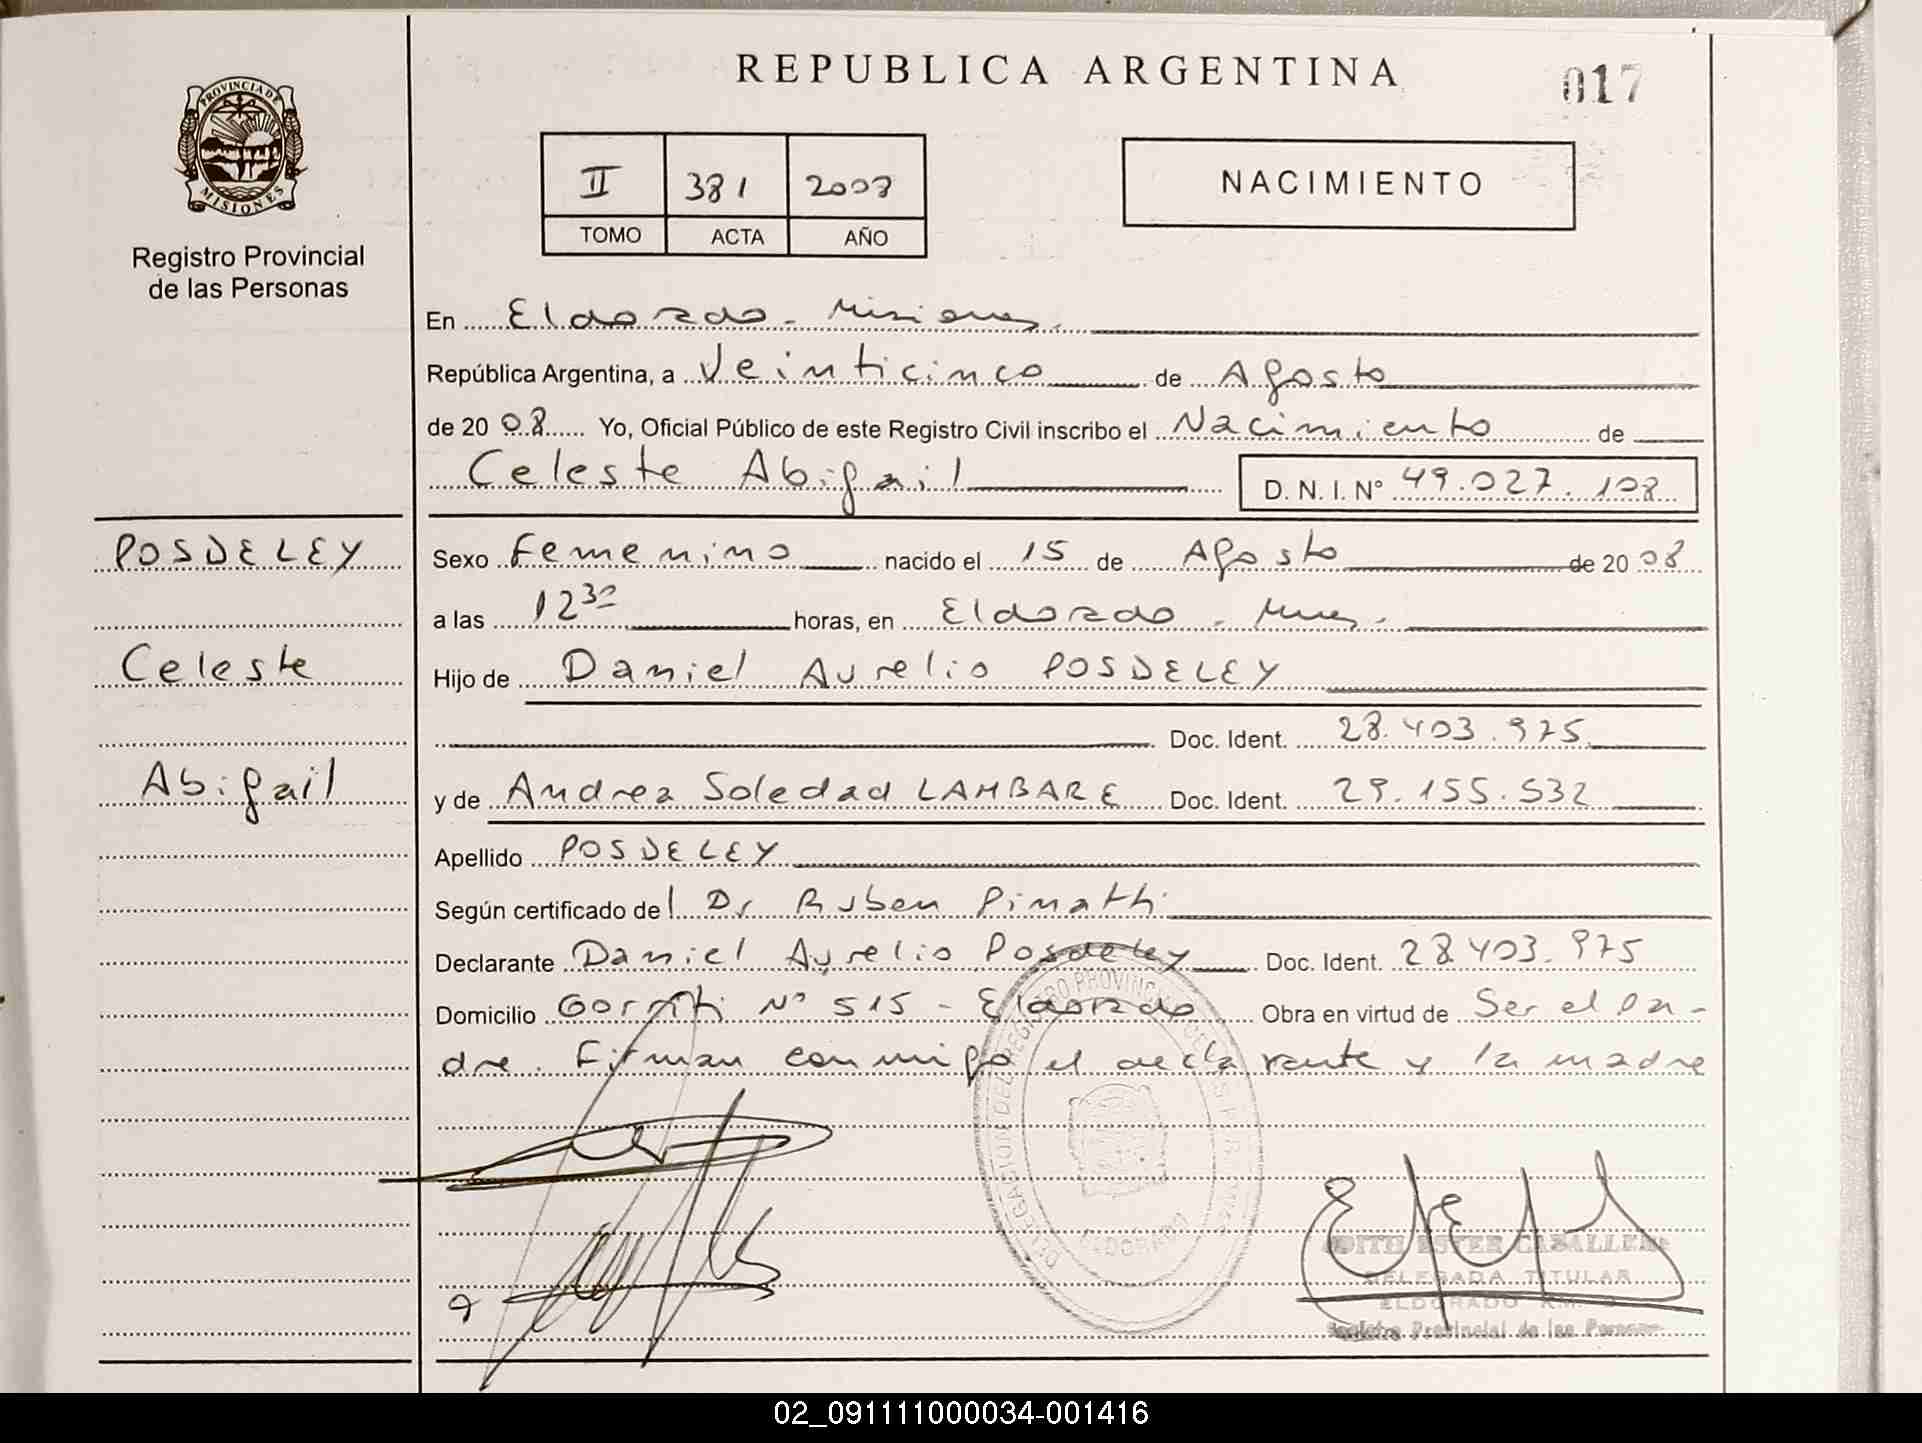 REPUBLICA ARGENTINA
017
PROVINCIA DE
MISIONES
Registro Provincial
de las Personas
II 381 2008
TOMO ACTA AÑO
NACIMIENTO
En Eldorado - Misiones.
República Argentina, a Veinticinco de Agosto
de 20 08 Yo, Oficial Público de este Registro Civil inscribo el Nacimiento de
Celeste Abigail D. N. I. N° 49.027.108
POSDELEY
Celeste
Abigail
Sexo Femenino nacido el 15 de Agosto de 20 08
a las 12 30 horas, en Eldorado - Mnes.
Hijo de Daniel Aurelio POSDELEY
Doc. Ident. 28.403.975
y de Andrea Soledad LAMBARE Doc. Ident. 29.155.532
Apellido POSDELEY
Según certificado del Dr Ruben Pinatti
Declarante Daniel Aurelio Posdeley Doc. Ident. 28403.975
Domicilio Gorriti N° 515 - Eldorado Obra en virtud de Ser el Pa-
dre. Firman conmigo el declarante y la madre
DELEGACION DEL REGISTRO PROVINCIAL DE LAS PERSONAS
ELDORADO
EDITH ESTER CABALLERO
DELEGADA TITULAR
ELDORADO KM.
Registro Provincial de las Personas
02_091111000034-001416